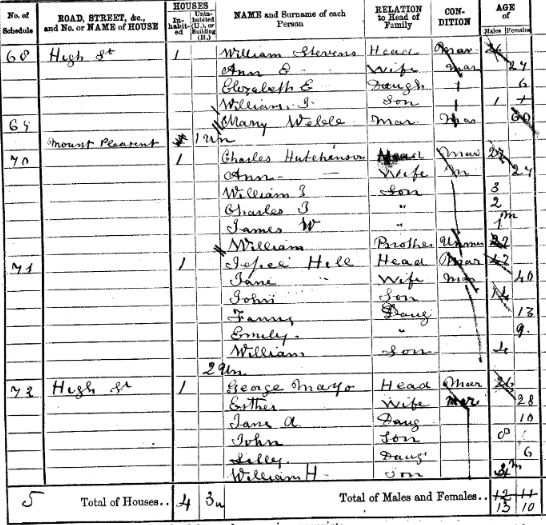 No. of Schedule | ROAD, STREET, &c., and No. or NAME of HOUSE | HOUSES In-habit-ed | Unin-habited (U.), or Building (B.) | NAME and Surname of each Person | RELATION to Head of Family | CON-DITION | AGE of Males | Females
68 High St 1 William Stevens Head Mar 26
Ann E Wife Mar 27
Elizabeth E Daugh 6
William J. Son 1
69 Mary Mar 60
Mount Pleasant 1 Un
70 1 Charles Hutchinson Head Mar 27
Ann Wife M 27
William J Son 3
Charles J " 2
James W " 1m
William Brother Unmar 22
71 1 Hill Head Mar 42
Jane " Wife Mar 40
John Son 14
Fanny Daug 13
Emily " 9
William Son 4
2 Un
73 High St 1 George Mayo Head Mar 26
Esther Wife Mar 28
Jane A. Daug 10
John Son 8
Lilly Daug 6
William H. Son m
5 Total of Houses.. 4 3u Total of Males and Females.. 12 11
13 10